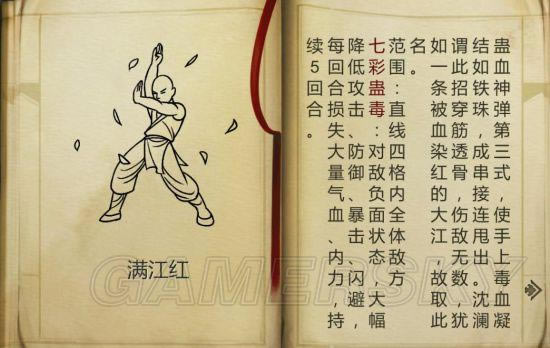 蛊血神弹第三式,使手上毒血凝
结如铁珠,成串接连甩出。沈澜
谓此招穿筋透骨,伤敌无数,犹
如一条被血染红的大江,故取此
名。
范围:直线四格内全体敌方
七彩蛊毒:对敌负面状态,大幅
降低攻击、防御、暴击、闪避,
每回合损失大量气血、内力,持
续5回合。
满江红
GAMERSKY